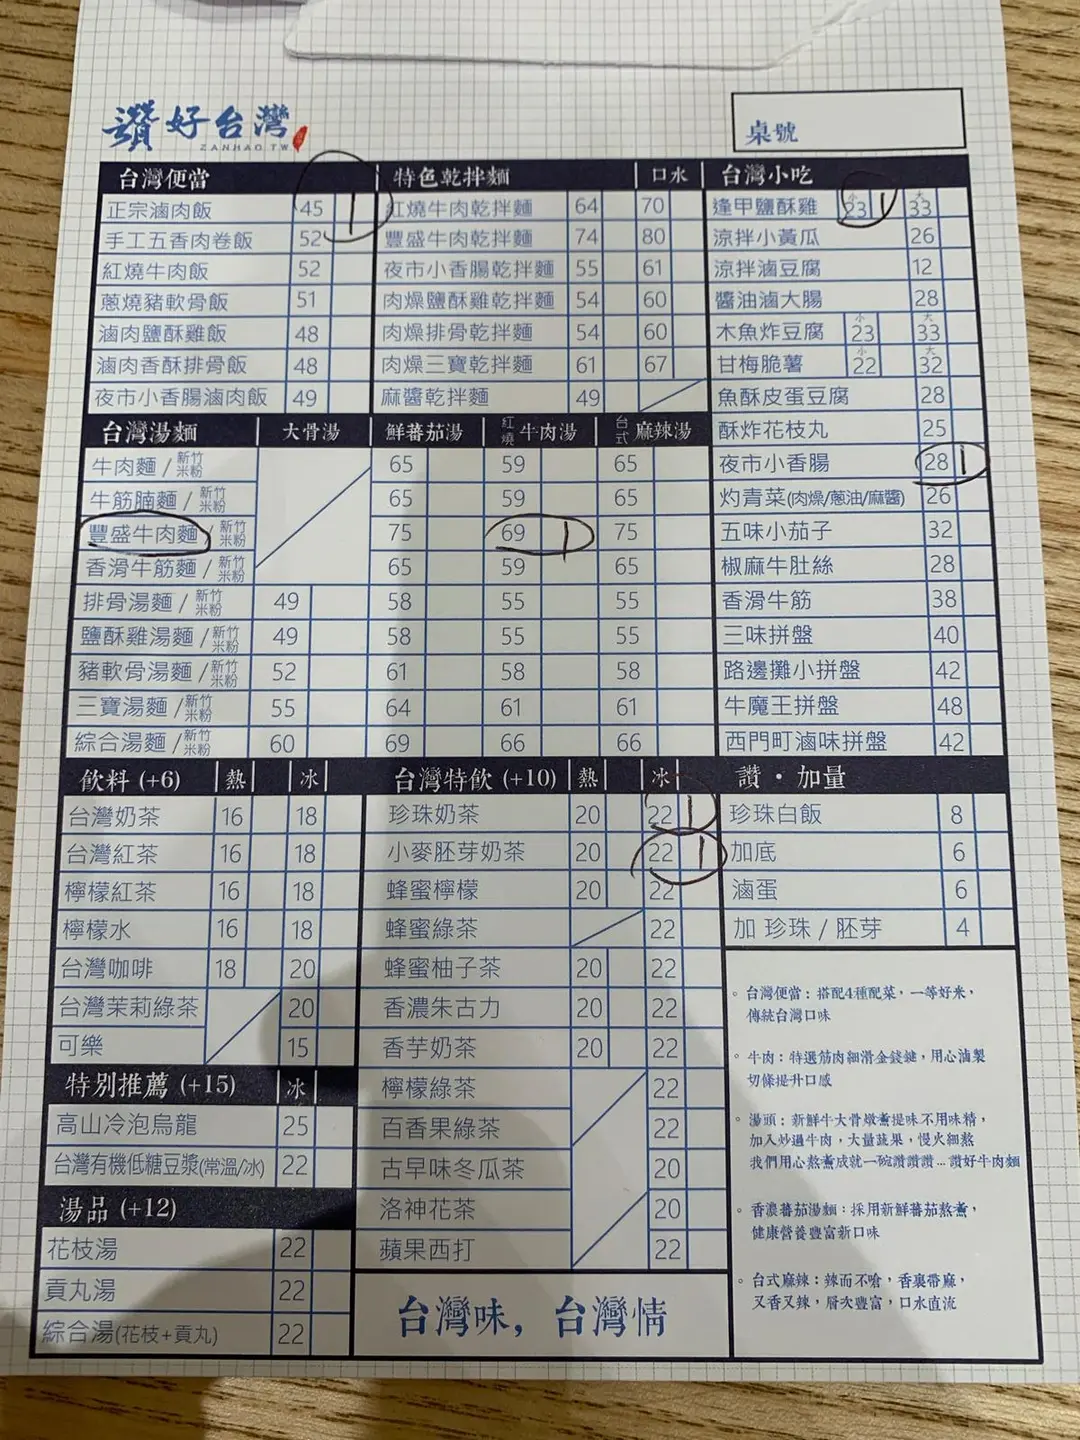 讚好台灣
ZANHAO.TW
桌號
台灣便當
正宗滷肉飯 45 1
手工五香肉卷飯 52
紅燒牛肉飯 52
蔥燒豬軟骨飯 51
滷肉鹽酥雞飯 48
滷肉香酥排骨飯 48
夜市小香腸滷肉飯 49
特色乾拌麵 口水
紅燒牛肉乾拌麵 64 70
豐盛牛肉乾拌麵 74 80
夜市小香腸乾拌麵 55 61
肉燥鹽酥雞乾拌麵 54 60
肉燥排骨乾拌麵 54 60
肉燥三寶乾拌麵 61 67
麻醬乾拌麵 49
台灣小吃
逢甲鹽酥雞 小23 1 大33
涼拌小黃瓜 26
涼拌滷豆腐 12
醬油滷大腸 28
木魚炸豆腐 小23 大33
甘梅脆薯 小22 大32
魚酥皮蛋豆腐 28
酥炸花枝丸 25
夜市小香腸 28 1
灼青菜(肉燥/蔥油/麻醬) 26
五味小茄子 32
椒麻牛肚絲 28
香滑牛筋 38
三味拼盤 40
路邊攤小拼盤 42
牛魔王拼盤 48
西門町滷味拼盤 42
台灣湯麵 大骨湯 鮮蕃茄湯 紅燒牛肉湯 台式麻辣湯
牛肉麵/新竹米粉 65 59 65
牛筋腩麵/新竹米粉 65 59 65
豐盛牛肉麵/新竹米粉 75 69 1 75
香滑牛筋麵/新竹米粉 65 59 65
排骨湯麵/新竹米粉 49 58 55 55
鹽酥雞湯麵/新竹米粉 49 58 55 55
豬軟骨湯麵/新竹米粉 52 61 58 58
三寶湯麵/新竹米粉 55 64 61 61
綜合湯麵/新竹米粉 60 69 66 66
飲料(+6) 熱 冰
台灣奶茶 16 18
台灣紅茶 16 18
檸檬紅茶 16 18
檸檬水 16 18
台灣咖啡 18 20
台灣茉莉綠茶 20
可樂 15
特別推薦(+15) 冰
高山冷泡烏龍 25
台灣有機低糖豆漿(常溫/冰) 22
湯品(+12)
花枝湯 22
貢丸湯 22
綜合湯(花枝+貢丸) 22
台灣特飲(+10) 熱 冰
珍珠奶茶 20 22 1
小麥胚芽奶茶 20 22 1
蜂蜜檸檬 20 22
蜂蜜綠茶 22
蜂蜜柚子茶 20 22
香濃朱古力 20 22
香芋奶茶 20 22
檸檬綠茶 22
百香果綠茶 22
古早味冬瓜茶 20
洛神花茶 20
蘋果西打 22
台灣味,台灣情
讚・加量
珍珠白飯 8
加底 6
滷蛋 6
加 珍珠/胚芽 4
。台灣便當:搭配4種配菜,一等好米,
傳統台灣口味
。牛肉:特選筋肉細滑金錢𦟌,用心滷製
切條提升口感
。湯頭:新鮮牛大骨燉煮提味不用味精,
加入炒過牛肉,大量蔬果,慢火細熬
我們用心熬煮成就一碗讚讚讚...讚好牛肉麵
。香濃蕃茄湯麵:採用新鮮蕃茄熬煮,
健康營養豐富新口味
。台式麻辣:辣而不嗆,香裏帶麻,
又香又辣,層次豐富,口水直流